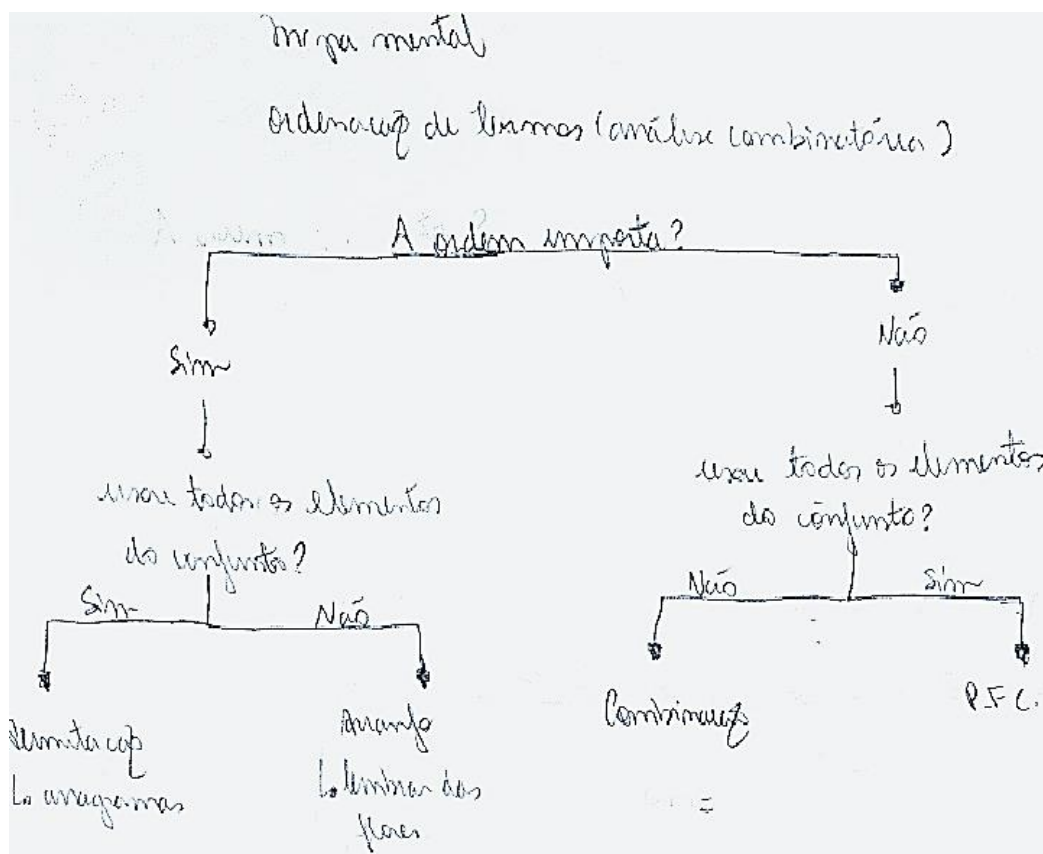 Mapa mental
ordenação de termos (análise combinatória)
A ordem importa?
Sim
Não
usou todos os elementos
do conjunto?
usou todos os elementos
do conjunto?
Sim
Não
Não
Sim
Permutação
↳ anagramas
Arranjo
↳ lembrar das
flores
Combinação
P.F.C.